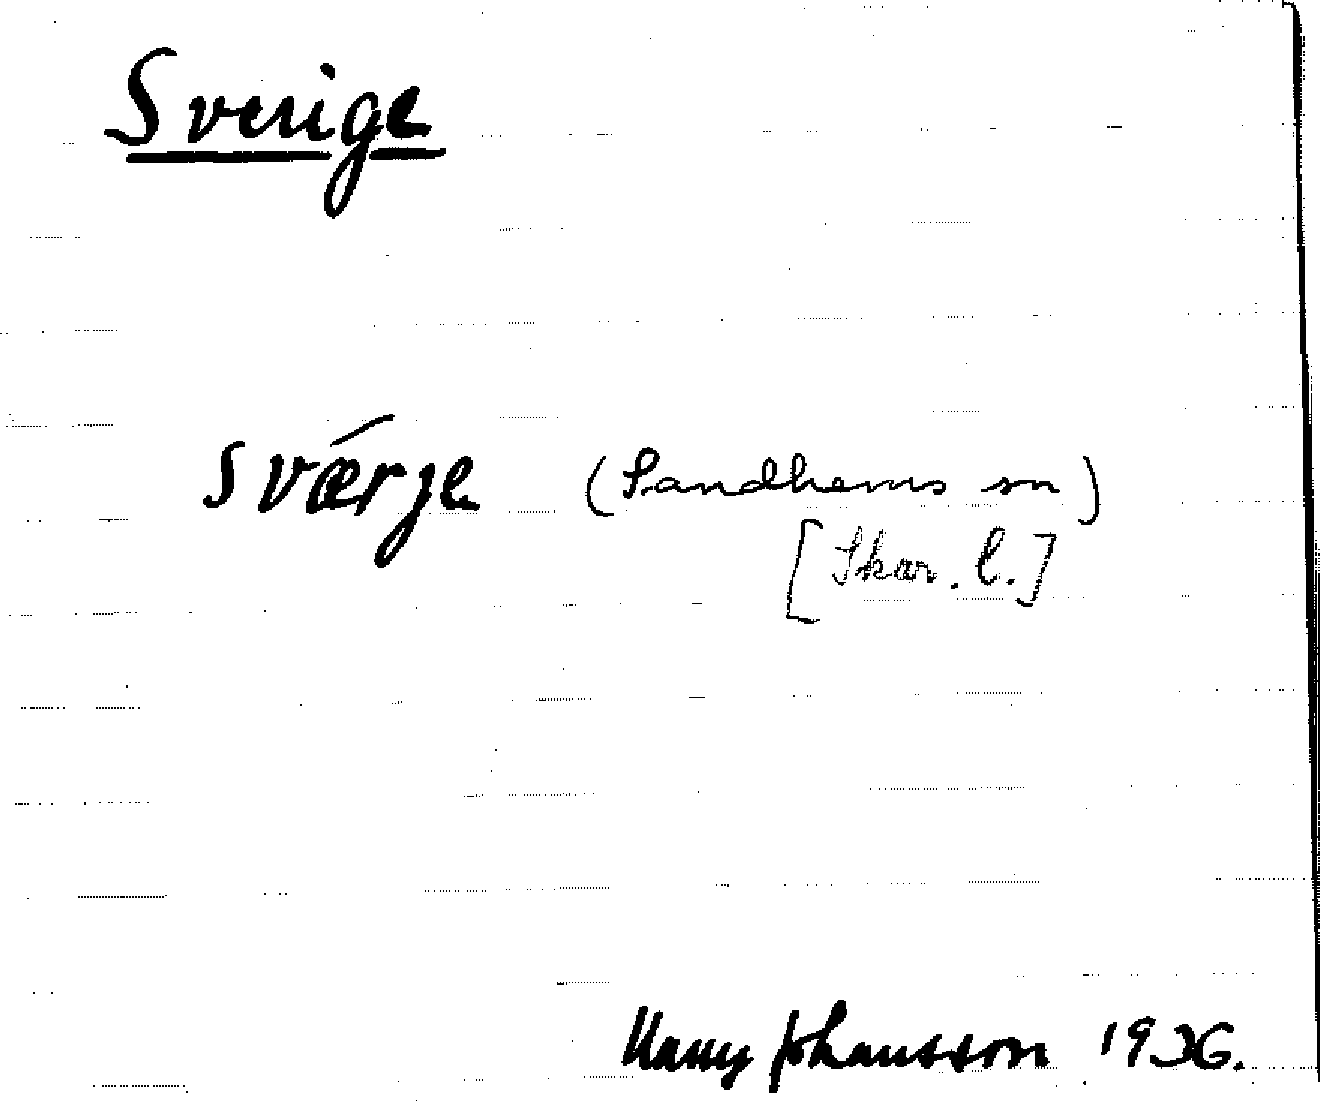 Sverige
svǽrje (Sandhems sn)
[Skar. l.]
Harry Johansson 1936.